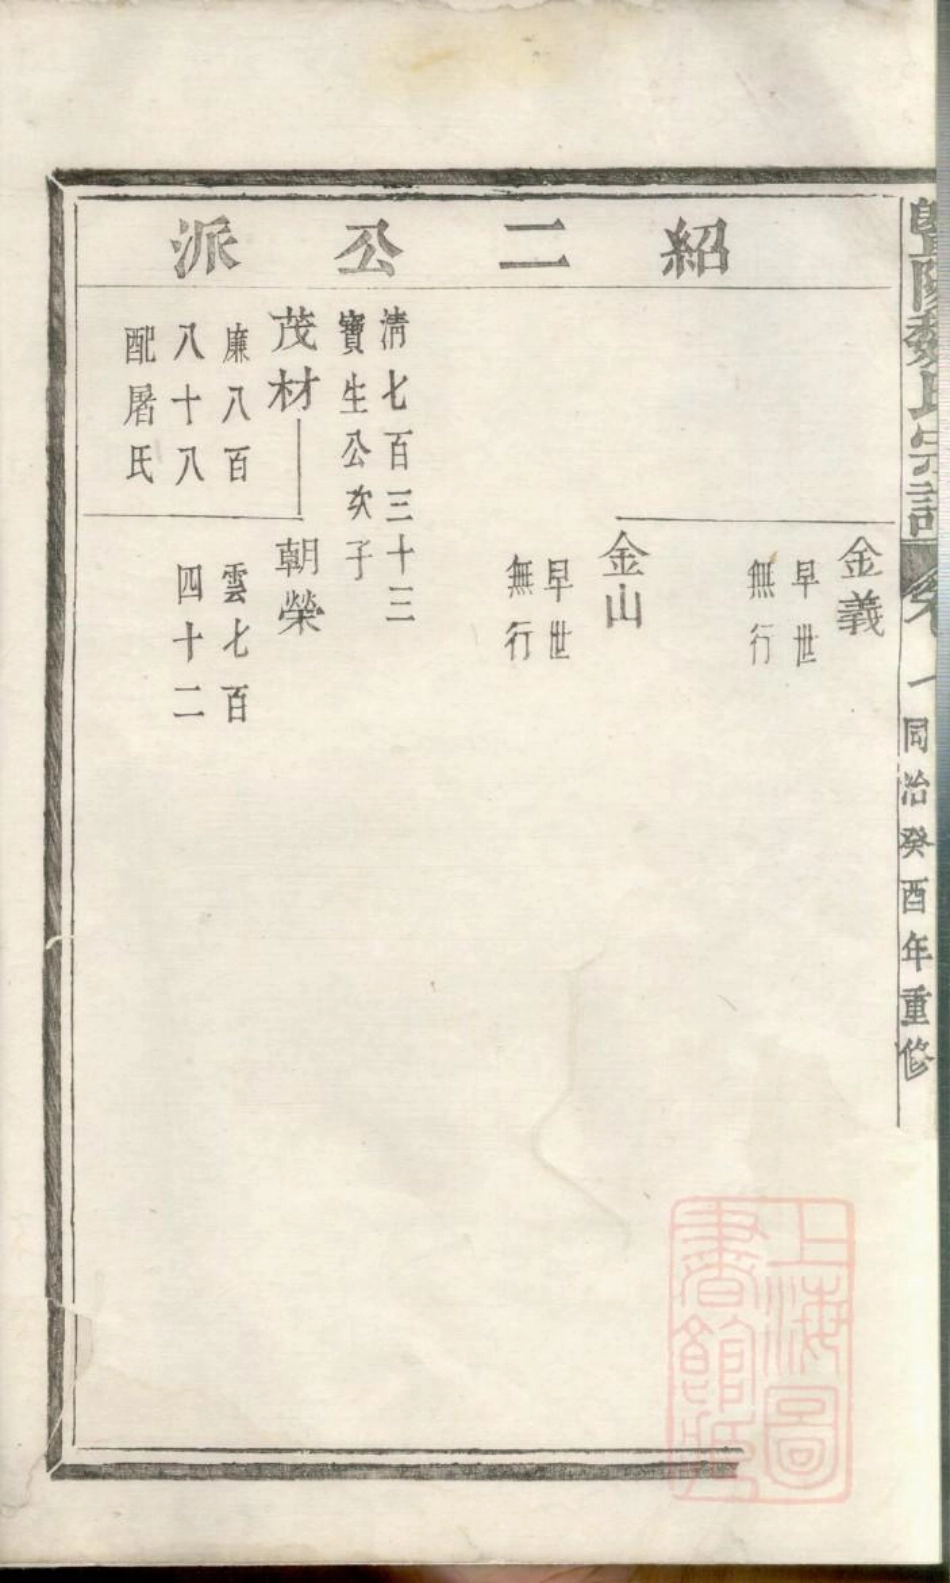 暨陽魏氏宗譜
卷
一
同治癸酉年重修
紹二公派
金義
早世
無行
金山
早世
無行
清七百三十三
寶生公次子
茂材
廉八百
八十八
配屠氏
朝榮
雲七百
四十二
上海圖
書館藏